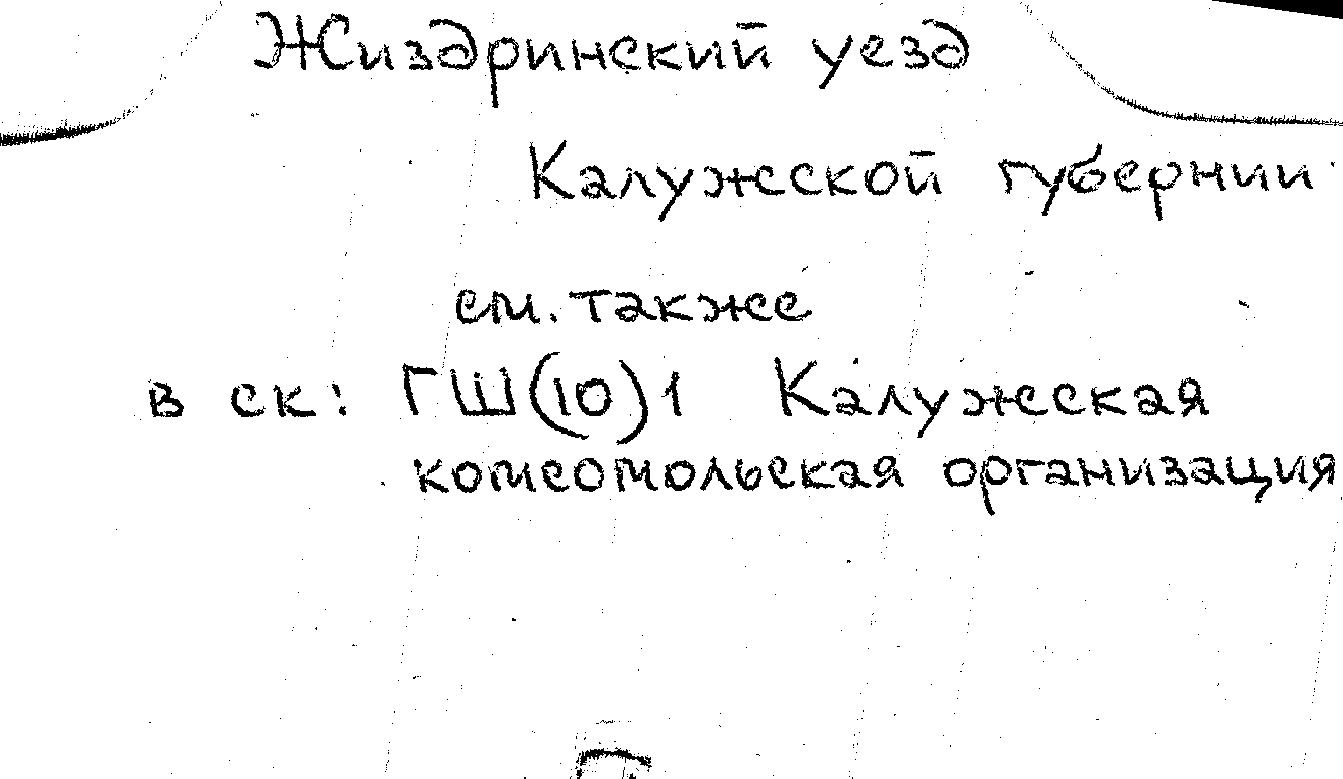 Жиздринский уезд
Калужской губернии
см. также
в ск: ГШ(10)1 Калужская
комсомольская организация